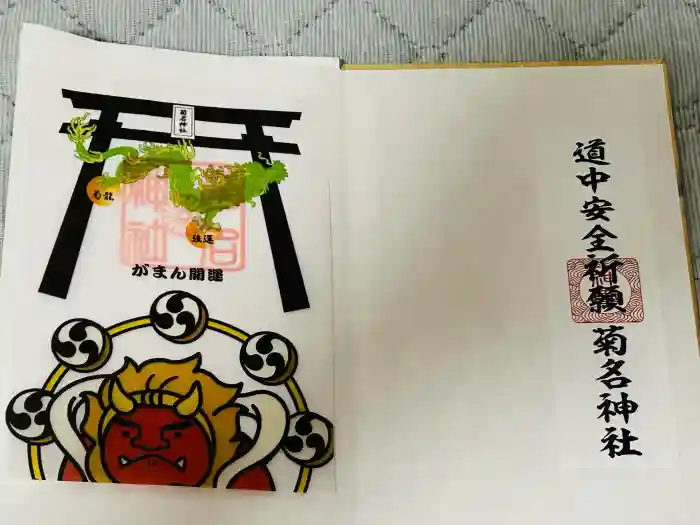 菊名神社
菊龍
強運
がまん開運
神社
道中安全祈願
菊名神社